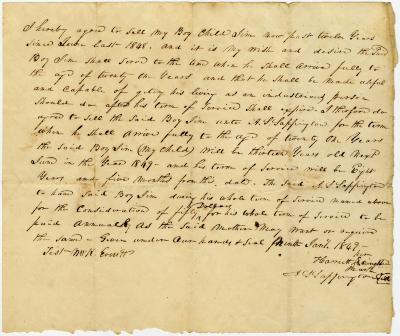 I hereby agree to sell my Boy Child Sim now past twelve Years
Since June Last 1848. and it is my wish and desire the said
Boy Sim shall serve to the time when he shall arrive fully to
the age of twenty one Years and that he shall be made useful
and capable of geting his living as an industerous person
should do after his term of service shall expire. I therefore do
agree to sell the Said Boy Sim unto A. S. Sappington for the term
when he shall arrive fully to the age of twenty One Years
the said Boy Sim (My Child) will be thirteen Years old Next
June in the Year 1849 - and his term of service will be Eight
Years and five Months from this date. The Said A. S. Sappington
to have Said Boy Sim during his whole term of service named above
for the Consideration of fifty Dollars for his whole term of Service to be
paid Annualy, As the Said Mother May want or require
the same - Given under Our hands & Seal Ninth Jan. 1849 -
Test Wm. R.
her
Harriett
mark
A. S. Sappington Seal